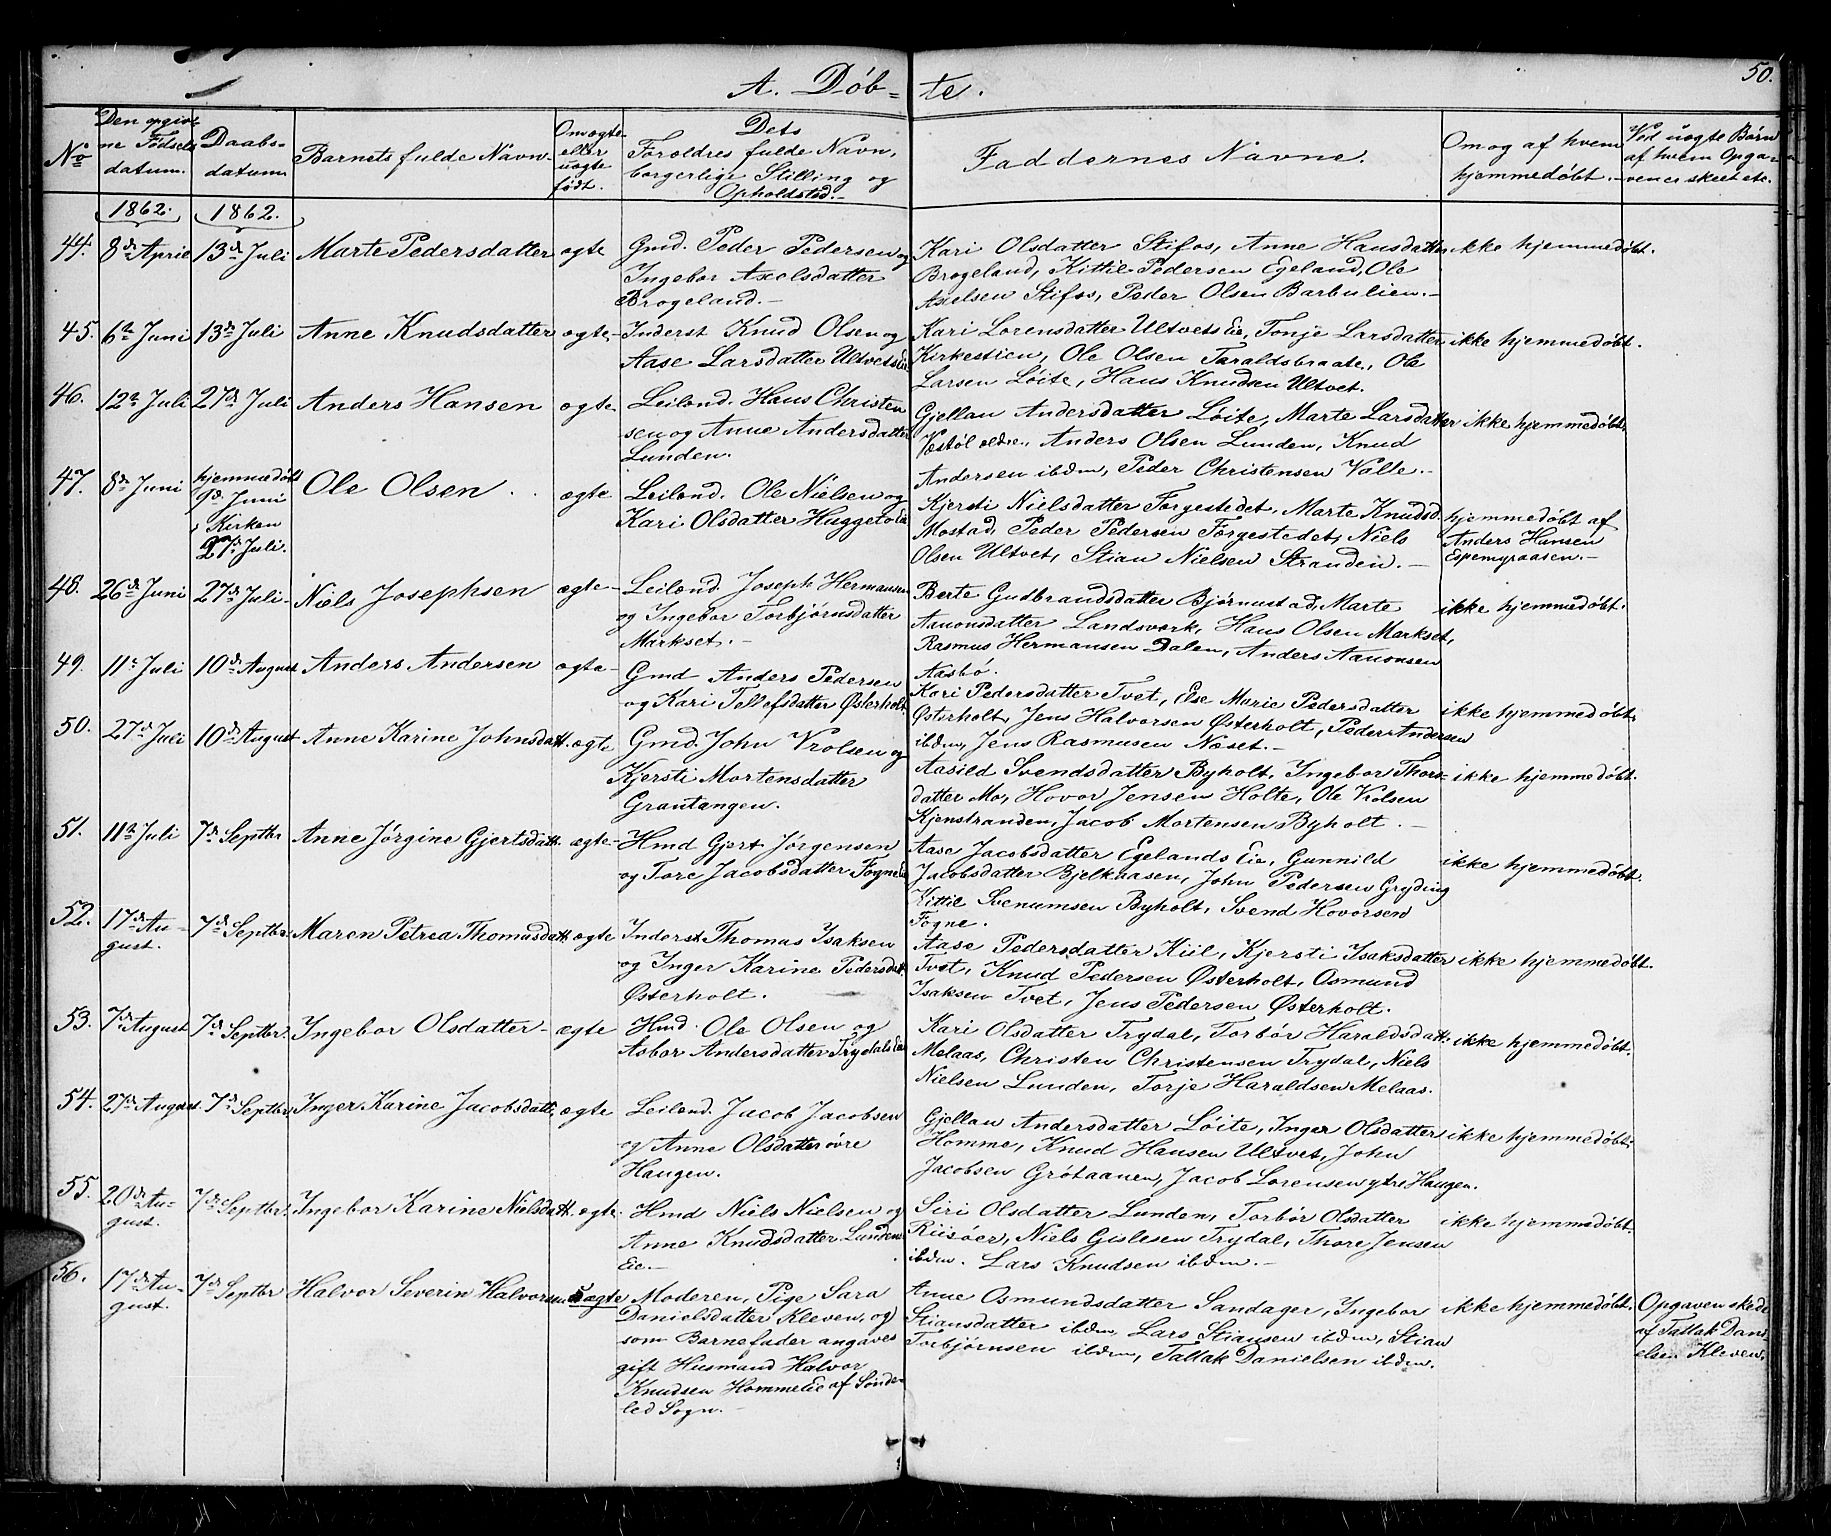 A. Døbte.
50.
No
Den opgivne Fødselsdatum.
Daabsdatum
Barnets fulde Navn.
Om ægte eller uægte født.
Dets Forældres fulde Navn, borgerlige Stilling og Opholdsted.
Faddernes Navne.
Om og af hvem hjemmedøbt.
Ved uægte Børn af hvem Opgavene er skeet etc.
1862. 1862.
44. 8de April 13de Juli Marte Pedersdatter ægte
Gmd. Peder Pedersen og
Ingebor Axelsdatter
Brogeland.
Kari Olsdatter Stifos, Anne Hansdatter
Brogeland, Kittil Pedersen Egeland, Ole
Axelsen Stifos, Peder Olsen Barbulien.
ikke hjemmedøbt.
45. 6te Juni 13de Juli Anne Knudsdatter ægte
Inderst Knud Olsen og
Aase Larsdatter Ultvets Eie
Kari Lorensdatter Ultvets Eie, Tonje Larsdatter
Kirkestien, Ole Olsen Taraldsbraate, Ole
Larsen Løite, Hans Knudsen Ultvet.
ikke hjemmedøbt.
46. 12te Juli 27de Juli Anders Hansen ægte
Leilænd. Hans Christen
sen og Anne Andersdatter
Lunden.
Gjellau Andersdatter Løite, Marte Larsdatter
Vestøl ældre, Anders Olsen Lunden, Knud
Andersen ibdm, Peder Christensen Valle.
ikke hjemmedøbt.
47. 8de Juni hjemmedøbt
9de Juni
i Kirken
27de Juli.
Ole Olsen ægte
Leilænd. Ole Nielsen og
Kari Olsdatter Huggeto Eie
Kjersti Nielsdatter Forgestedet, Marte Knudsd.
Mostad, Peder Pedersen Forgestedet, Niels
Olsen Ultvet, Stian Nielsen Stranden.
hjemmedøbt af
Anders Hansen
Espemyraasen.
48. 26de Juni 27de Juli Niels Josephsen ægte
Leilænd. Joseph Hermansen
og Ingebor Torbjørnsdatter
Markset.
Berte Gudbrandsdatter Bjørnustad, Marte
Aanonsdatter Landsverk, Hans Olsen Markset,
Rasmus Hermansen Dalen, Anders Aanonsen
Aasbø.
ikke hjemmedøbt.
49. 11te Juli 10de August Anders Andersen ægte
Gmd Anders Pedersen
og Kari Tellefsdatter Østerholt
Kari Pedersdatter Tvet, Else Marie Pedersdatter
Østerholt, Jens Halvorsen Østerholt, Peder Andersen
ibdm, Jens Rasmusen Næset.
ikke hjemmedøbt.
50. 27de Juli 10de August Anne Karine Johnsdatt. ægte
Gmd. John Vrolsen og
Kjersti Mortensdatter
Grantangen.
Aasild Svendsdatter Byholt, Ingebor Thors-
datter Mo, Hovor Jensen Holte, Ole Vrolsen
Kjenstranden, Jacob Mortensen Byholt.
ikke hjemmedøbt.
51. 11te Juli 7de Septbr Anne Jørgine Gjertsdatt. ægte
Hmd Gjert Jørgensen
og Tore Jacobsdatter Fogne Eie
Aase Jacobsdatter Egelands Eie, Gunnild
Jacobsdatter Bjelkaasen, John Pedersen Gryding
Kittil Svenumsen Byholt, Svend Hovorsen
Fogne.
ikke hjemmedøbt.
52. 17de August. 7de Septbr. Maren Petrea Thomasdatt. ægte
Inderst Thomas Isaksen
og Inger Karine Pedersdat.
Østerholt.
Aase Pedersdatter Kiil, Kjersti Isaksdatter
Tvet, Knud Pedersen Østerholt, Osmund
Isaksen Tvet, Jens Pedersen Østerholt.
ikke hjemmedøbt.
53. 7de August 7de Septbr. Ingebor Olsdatter ægte
Hmd. Ole Olsen og
Asbor Andersdatter Trydals Eie
Kari Olsdatter Trydal, Torbør Haraldsdatt.
Melaas, Christen Christensen Trydal, Niels
Nielsen Lunden, Torje Haraldsen Melaas.
ikke hjemmedøbt.
54. 27de August. 7de Septbr. Inger Karine Jacobsdatt. ægte
Leilænd. Jacob Jacobsen
og Anne Olsdatter øvre
Haugen.
Gjellau Andersdatter Løite, Inger Olsdatter
Homme, Knud Hansen Ultvet, John
Jacobsen Grøtaanen, Jacob Lorensen ytre Haugen.
ikke hjemmedøbt.
55. 20de August. 7de Septbr. Ingebor Karine Nielsdatt. ægte
Hmd Niels Nielsen og
Anne Knudsdatter Lundens
Eie.
Siri Olsdatter Lunden, Torbør Olsdatter
Riisøer, Niels Gislesen Trydal, Thore Jensen
ibdm. Lars Knudsen ibdm.
ikke hjemmedøbt.
56. 17de August. 7de Septbr Halvor Severin Halvorsen uægte
Moderen, Pige Sara
Danielsdatter Kleven, og
som Barnefader angaves
gift Husmand Halvor
Knudsen Homme Eie af Sønde-
led Sogn.
Anne Osmundsdatter Sandager, Ingebor
Stiansdatter ibdm, Lars Stiansen ibdm, Stian
Torbjørnsen ibdm, Tallak Danielsen ibdm.
ikke hjemmedøbt.
Opgaven skede
af Tallak Dani-
elsen Kleven.